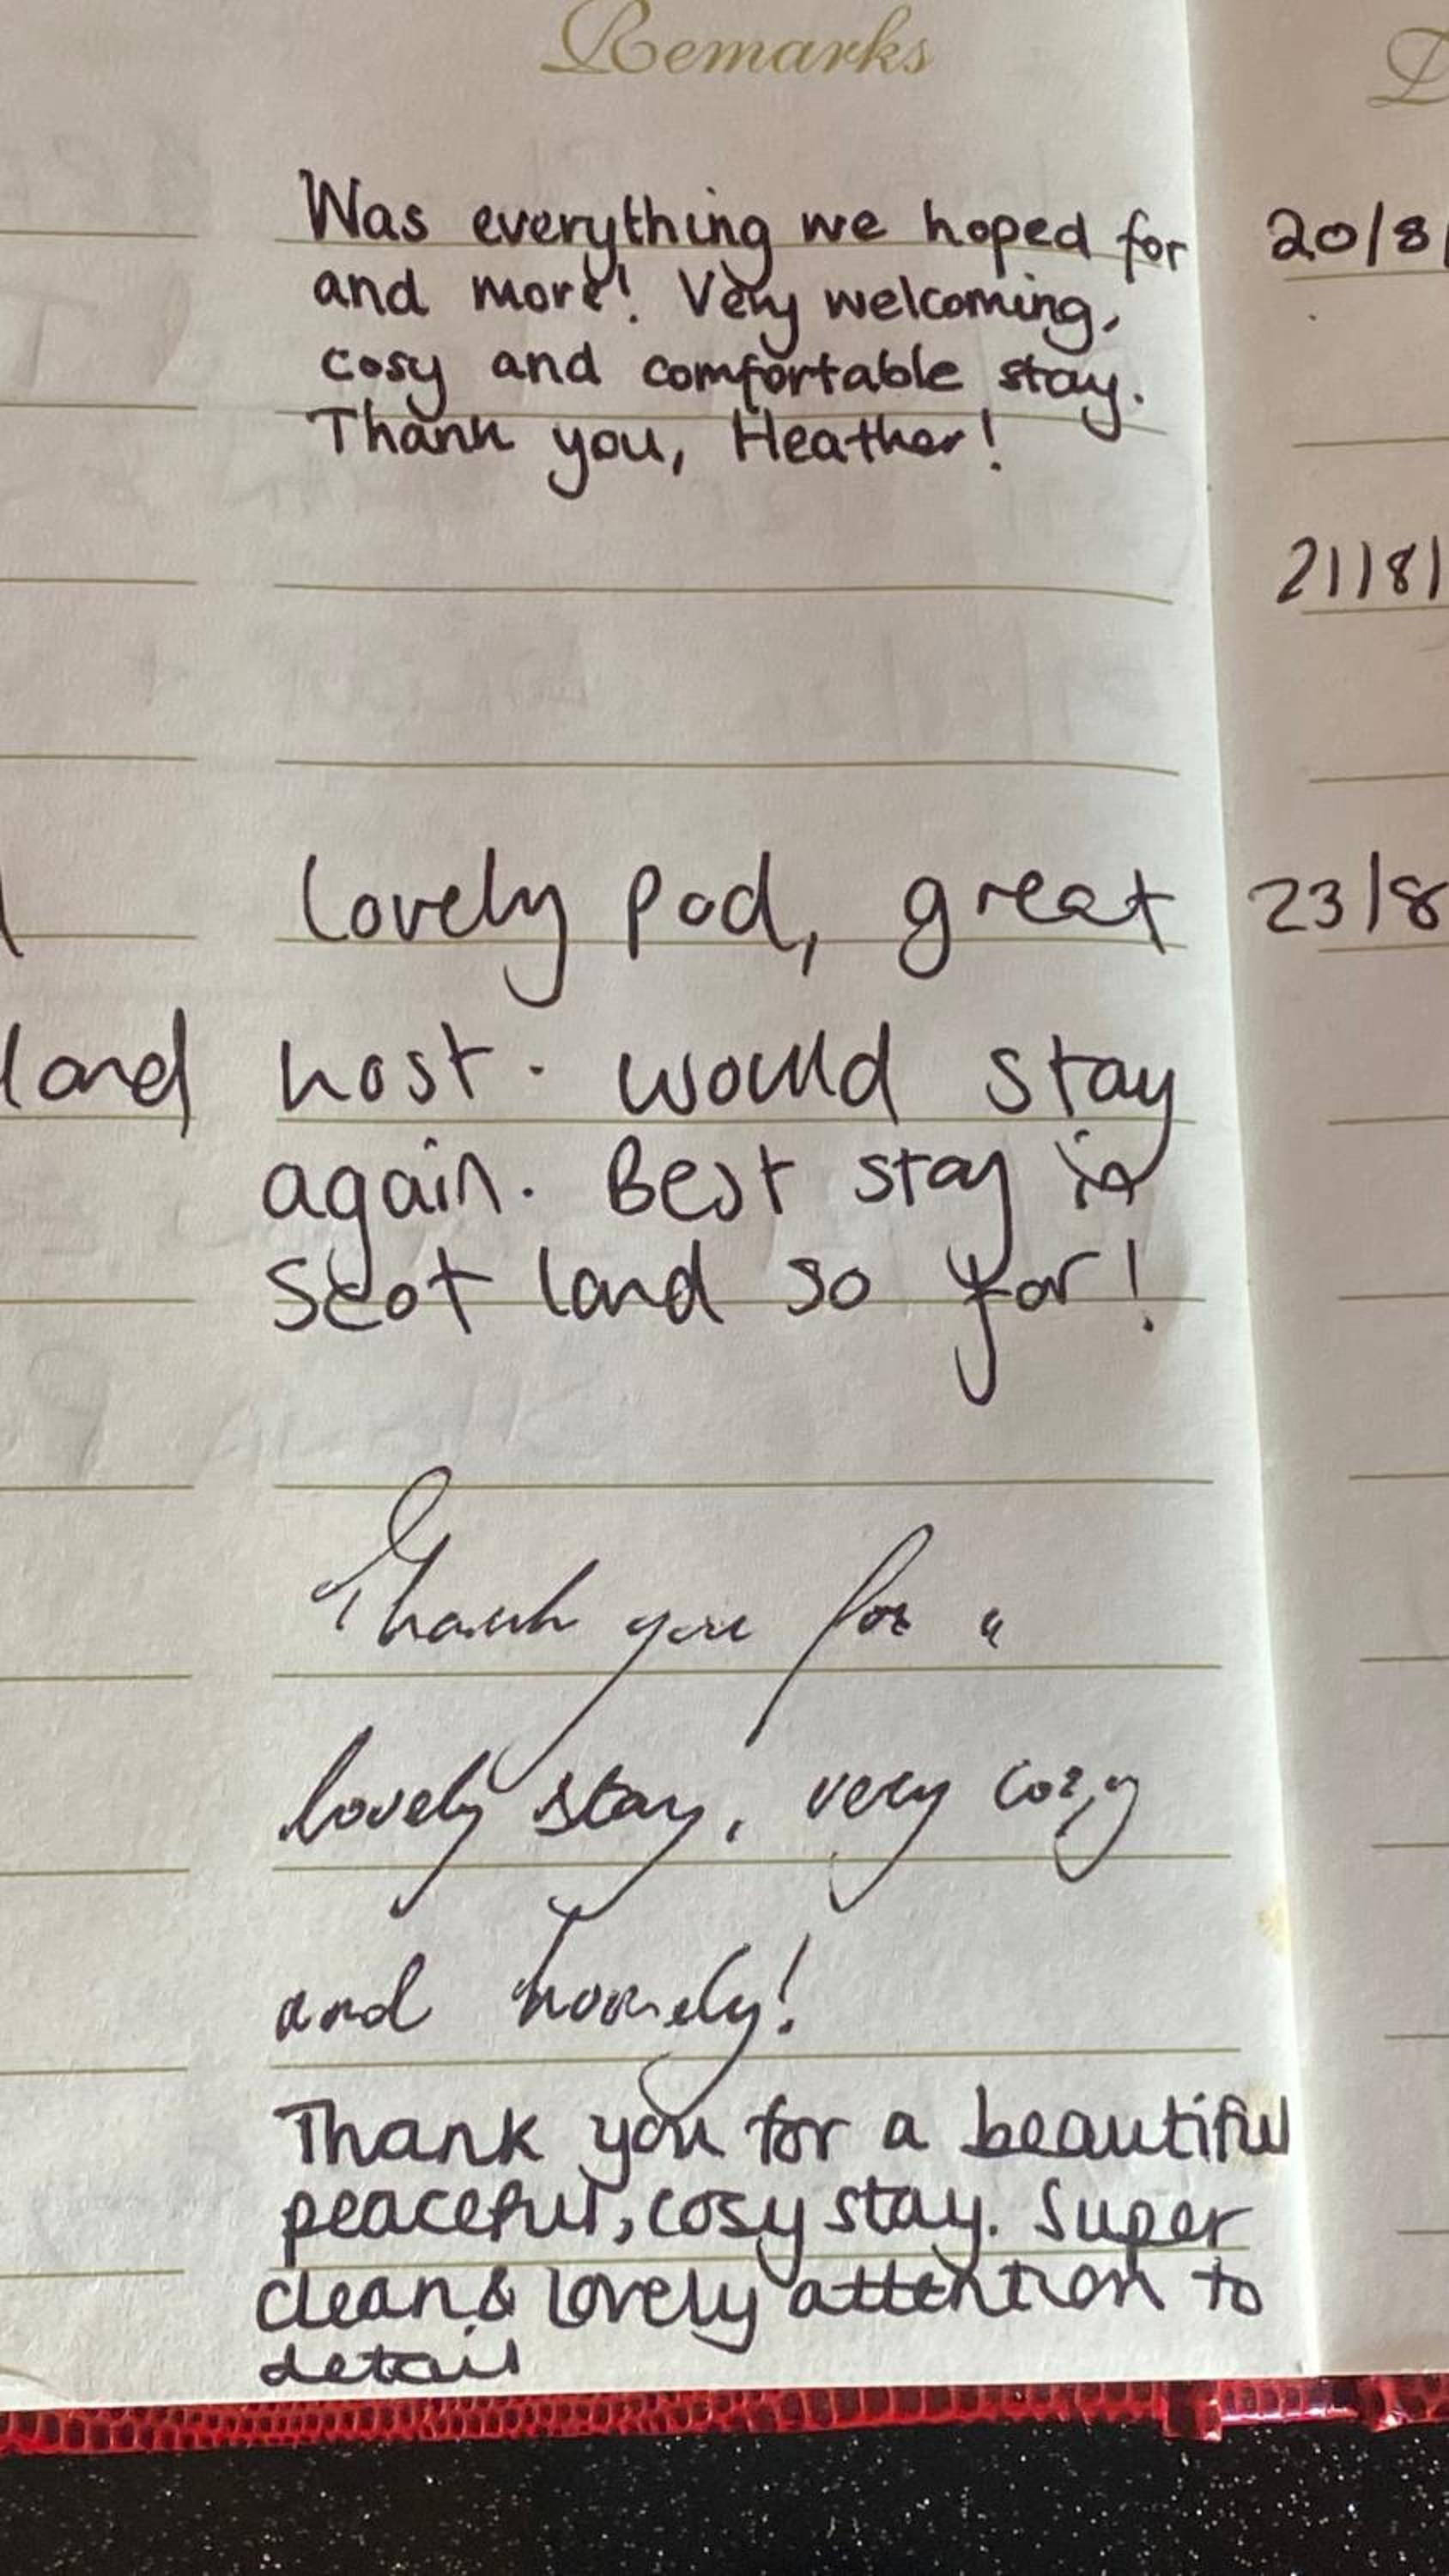 Remarks
Was everything we hoped for
and more! Very welcoming,
cosy and comfortable stay.
Thank you, Heather!
lovely pod, great
host. would stay
again. Best stay in
Scotland so far!
Thank you for a
lovely stay, very cozy
and homely!
Thank you for a beautiful
peaceful, cosy stay. Super
clean & lovely attention to
detail
land
20/8/
21/8/
23/8